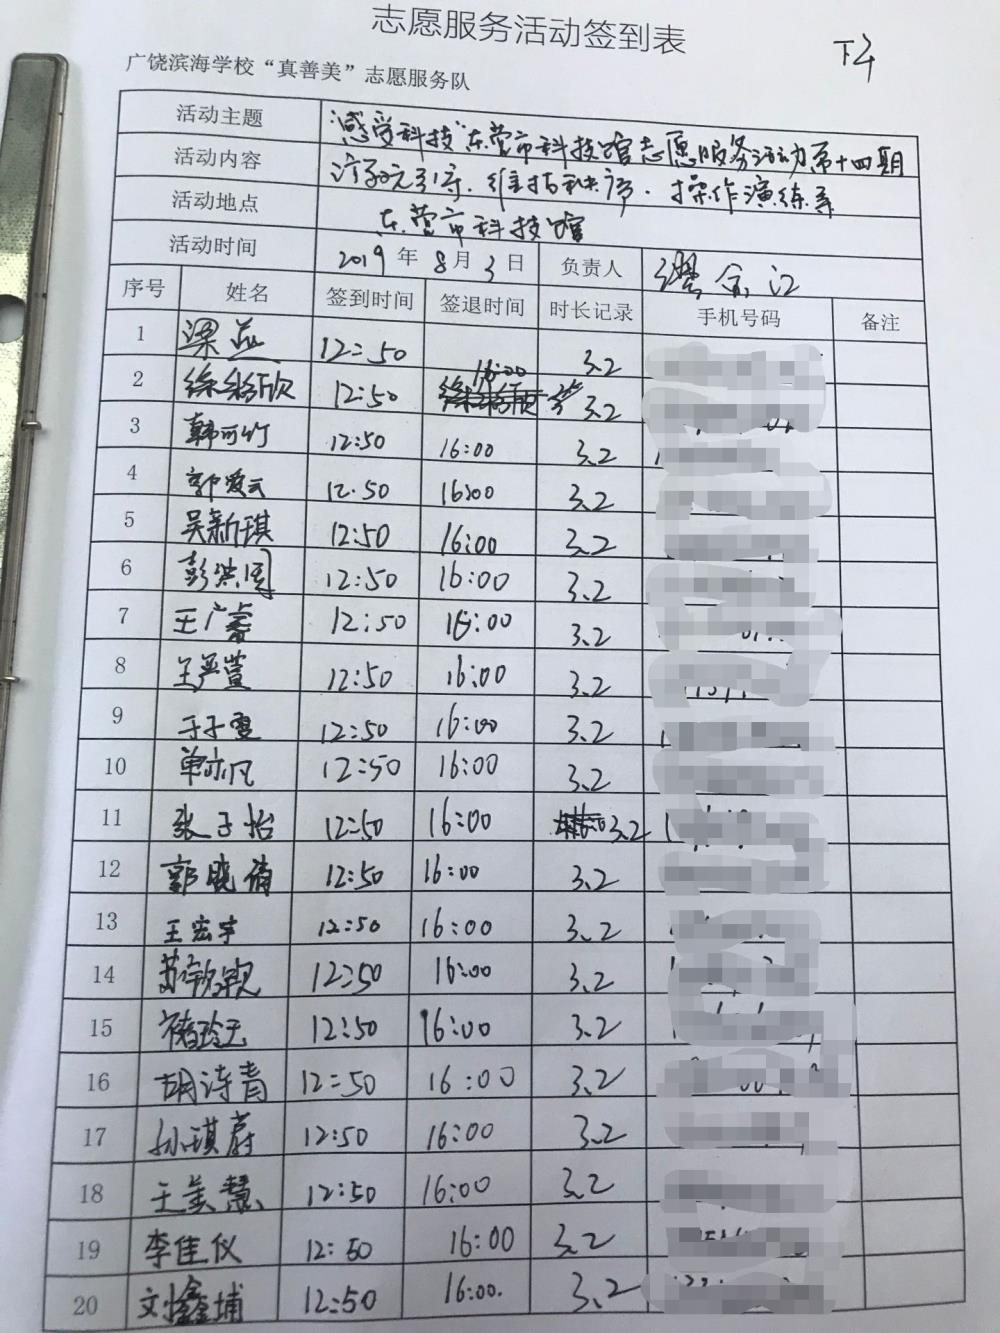 志愿服务活动签到表
下4
广饶滨海学校“真善美”志愿服务队
活动主题 “感受科技”东营市科技馆志愿服务活动第十四期
活动内容 维持秩序、操作演练等
活动地点 东营市科技馆
活动时间 2019年8月3日 负责人
序号 姓名 签到时间 签退时间 时长记录 手机号码 备注
1 梁 12:50 3.2
2 徐彩欣 12:50 16:00 3.2
3 韩可竹 12:50 16:00 3.2
4 郭爱云 12.50 16:00 3.2
5 吴新琪 12:50 16:00 3.2
6 彭洪图 12:50 16:00 3.2
7 王广睿 12:50 16:00 3.2
8 王严萱 12:50 16:00 3.2
9 于子雯 12:50 16:00 3.2
10 单亦凡 12:50 16:00 3.2
11 张子怡 12:50 16:00 3.2
12 郭晓倩 12:50 16:00 3.2
13 王宏宇 12:50 16:00 3.2
14 苏 12:50 16:00 3.2
15 褚玲玉 12:50 16:00 3.2
16 胡诗青 12:50 16:00 3.2
17 孙琪蔚 12:50 16:00 3.2
18 王美慧 12:50 16:00 3.2
19 李佳仪 12:50 16:00 3.2
20 鑫埔 12:50 16:00. 3.2